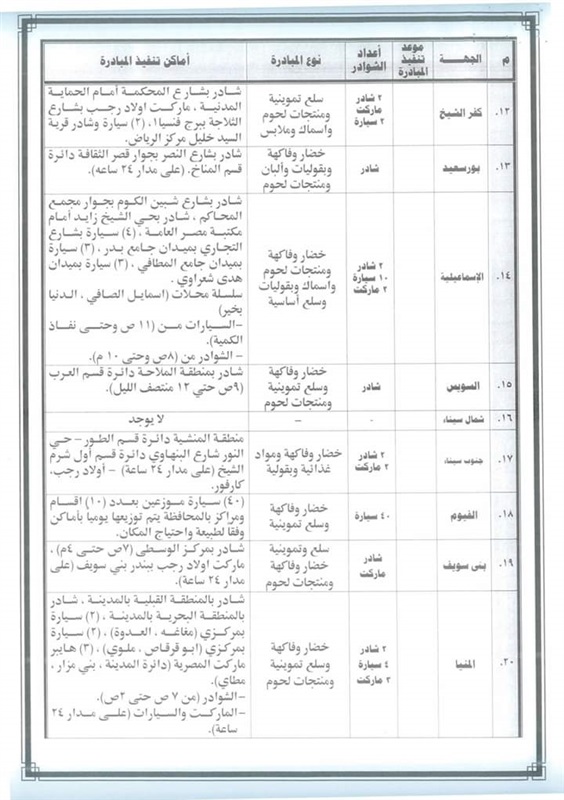 م
الجهـة
موعد
تنفيذ
المبادرة
أعداد
الشوادر
نوع المبادرة
أماكن تنفيذ المبادرة
١٢.
كفر الشيخ
٢ شادر
ماركت
٢ سيارة
سلع تموينية
ومنتجات لحوم
واسماك وملابس
شادر بشارع المحكمة أمام الحماية
المدنية ، ماركت اولاد رجب بشارع
الثلاجة ببرج فنسيا١، (٢) سيارة وشادر قرية
السيد خليل مركز الرياض.
١٣.
بورسعيد
شادر
خضار وفاكهة
وبقوليات وألبان
ومنتجات لحوم
شادر بشارع النصر بجوار قصر الثقافة دائرة
قسم المناخ. (على مدار ٢٤ ساعه).
١٤.
الإسماعيلية
٢ شادر
١٠ سيارة
٢ ماركت
خضار وفاكهة
وسلع تموينية
ومنتجات لحوم
واسماك وبقوليات
وسلع أساسية
شادر بشارع شبين الكوم بجوار مجمع
المحاكم ، شادر بحي الشيخ زايد أمام
مكتبة مصر العامة ، (٤) سيارة بشارع
التجاري بميدان جامع بدر ، (٣) سيارة
بميدان جامع المطافي ، (٣) سيارة بميدان
هدى شعراوي .
سلسلة محلات (اسمايل الصافي ، الدنيا
بخير)
-السيارات مـن (١١ ص وحتـى نفـاذ
الكمية).
- الشوادر من (٨ص وحتى ١٠ م).
١٥.
السويس
شادر
خضار وفاكهة
وسلع تموينية
ومنتجات لحوم
شادر بمنطقة الملاحة دائرة قسم العرب
(٩ص حتي ١٢ منتصف الليل).
١٦.
شمال سيناء
-
–
لا يوجد
١٧.
جنوب سيناء
٢ شادر
٢ ماركت
خضار وفاكهة ومواد
غذائية وبقولية
منطقة المنشية دائرة قسم الطور – حي
النور شارع البنهاوي دائرة قسم أول شرم
الشيخ (على مدار ٢٤ ساعة) – أولاد رجب،
كارفور.
١٨.
الفيوم
٤٠ سيارة
خضار وفاكهة
وسلع تموينية
(٤٠) سيارة موزعين بعدد (١٠) اقسام
ومراكز بالمحافظة يتم توزيعها يوميا بأماكن
وفقا لطبيعة واحتياج المكان.
١٩.
بنى سويف
شادر
ماركت
سلع وتموينية
خضار وفاكهة
ومنتجات لحوم
شادر بمركز الوسطى (٧ص حتى ٤م) ،
ماركت اولاد رجب ببندر بني سويف (على
مدار ٢٤ ساعة).
٢٠.
المنيا
٢ شادر
٤ سيارة
٣ ماركت
خضار وفاكهة
وسلع تموينية
ومنتجات لحوم
شادر بالمنطقة القبلية بالمدينة ، شادر
بالمنطقة البحرية بالمدينة ، (٢) سيارة
بمركزي (مغاغه ، العدوة) ، (٢) سيارة
بمركزي (ابو قرقاص ، ملوي) ، (٣) هايبر
ماركت المصرية (دائرة المدينة ، بني مزار ،
مطاي).
- الشوادر (من ٧ ص حتى ٢ص).
- الماركت والسيارات (على مدار ٢٤
ساعة).